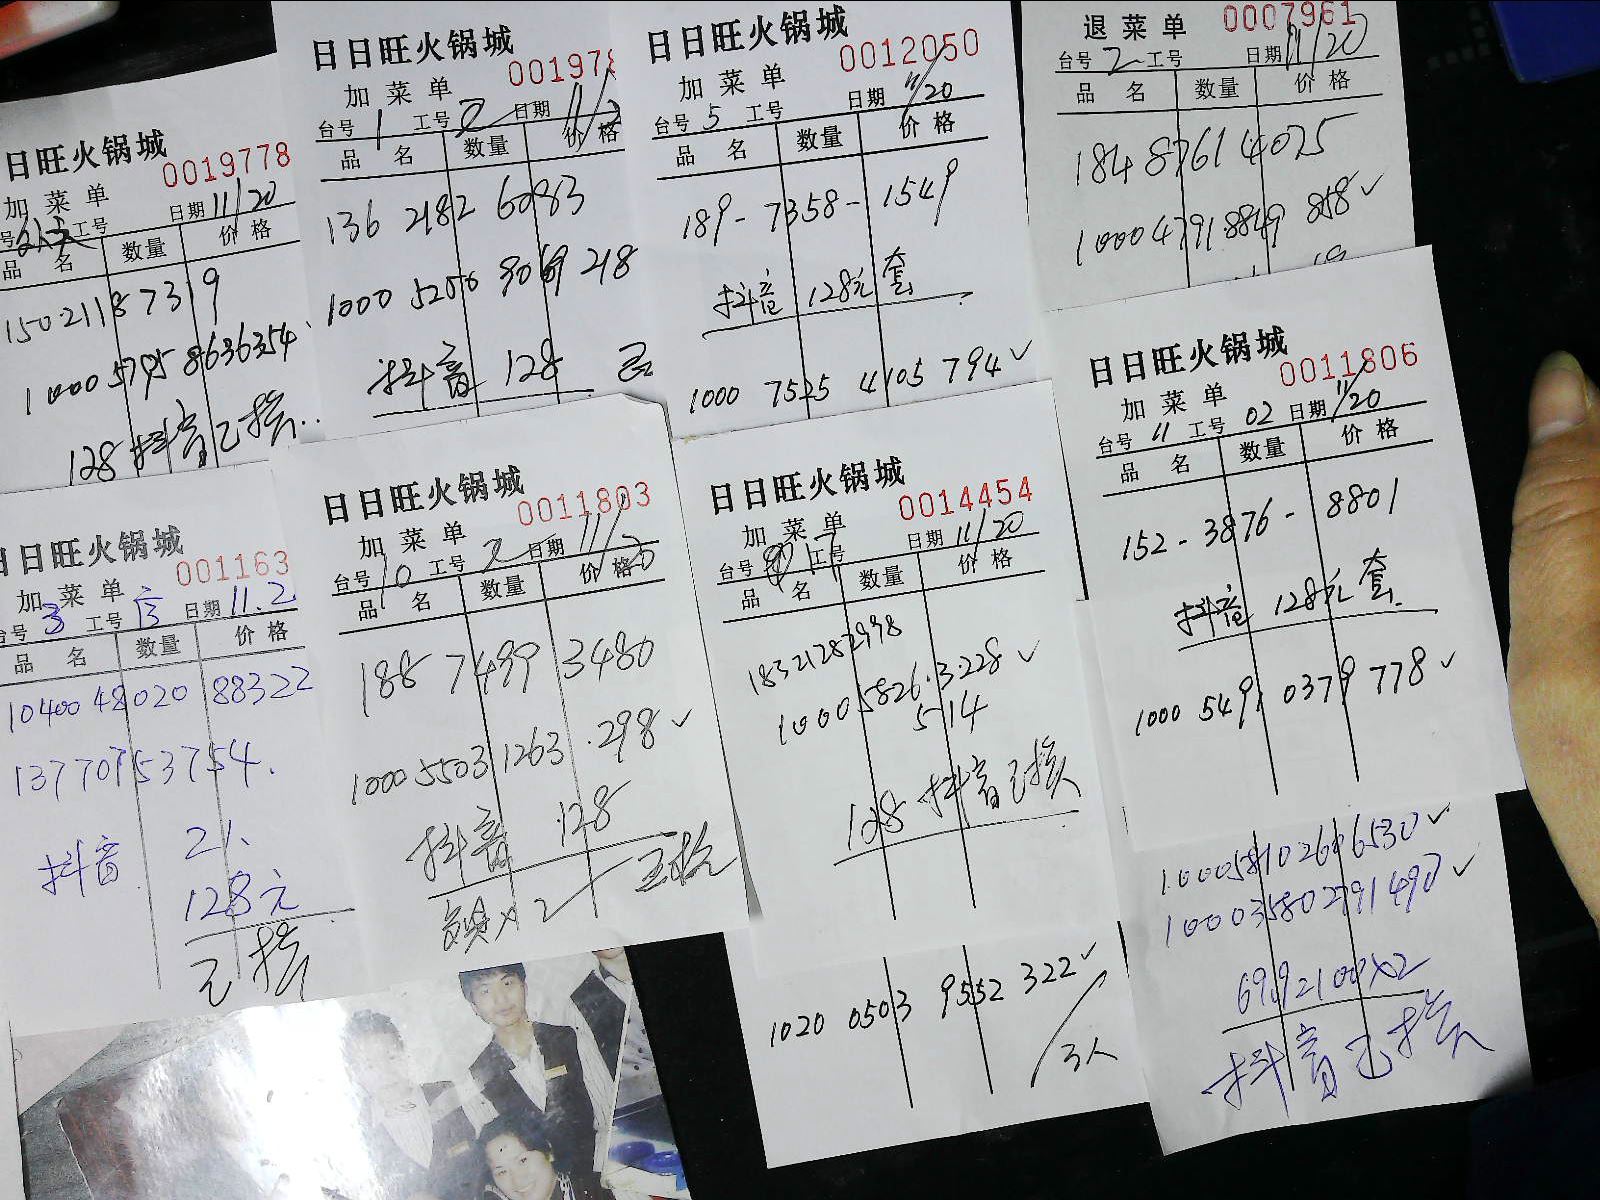 日旺火锅城
0019778
加菜单
号 工号 日期 11/20
品名 数量 价格
150 2118 7319
1000 5795 8636354
128 抖音已核
日日旺火锅城
001978
加菜单
台号 1 工号 2 日期 11/2
品名 数量 价格
136 2182 6083
1000 5256 9069 218
抖音 128 已
日日旺火锅城
0012050
加菜单
台号 5 日期 11/20
品名 数量 价格
189-7358-1549
抖音 128元 套
1000 7525 4105 794✓
退菜单 0007961
台号 2 工号 日期 11/20
品名 数量 价格
184 8761 4025
1000 4791 8849 858✓
日日旺火锅城
001163
加菜单
台号 3 工号 日期 11.2
品名 数量 价格
10400 48020 88322
13770753754.
抖音 21.
128元
已核
日日旺火锅城
0011803
加菜单
台号 10 工号 2 日期 11/20
品名 数量 价格
188 7499 3480
1000 5503 1263 .298✓
抖音 128
已核
日日旺火锅城
0014454
加菜单
台号 工号 日期 11/20
品名 数量 价格
18321282998
1000 5826.3228✓
514
128 抖音已核
日日旺火锅城
0011806
加菜单
台号 11 工号 02 日期 11/20
品名 数量 价格
152-3876-8801
抖音 128元 套
1000 5491 0379 778✓
1020 0503 9552 322✓
3人
1000581026616530✓
100035802791490✓
69.92100X2
抖音已核